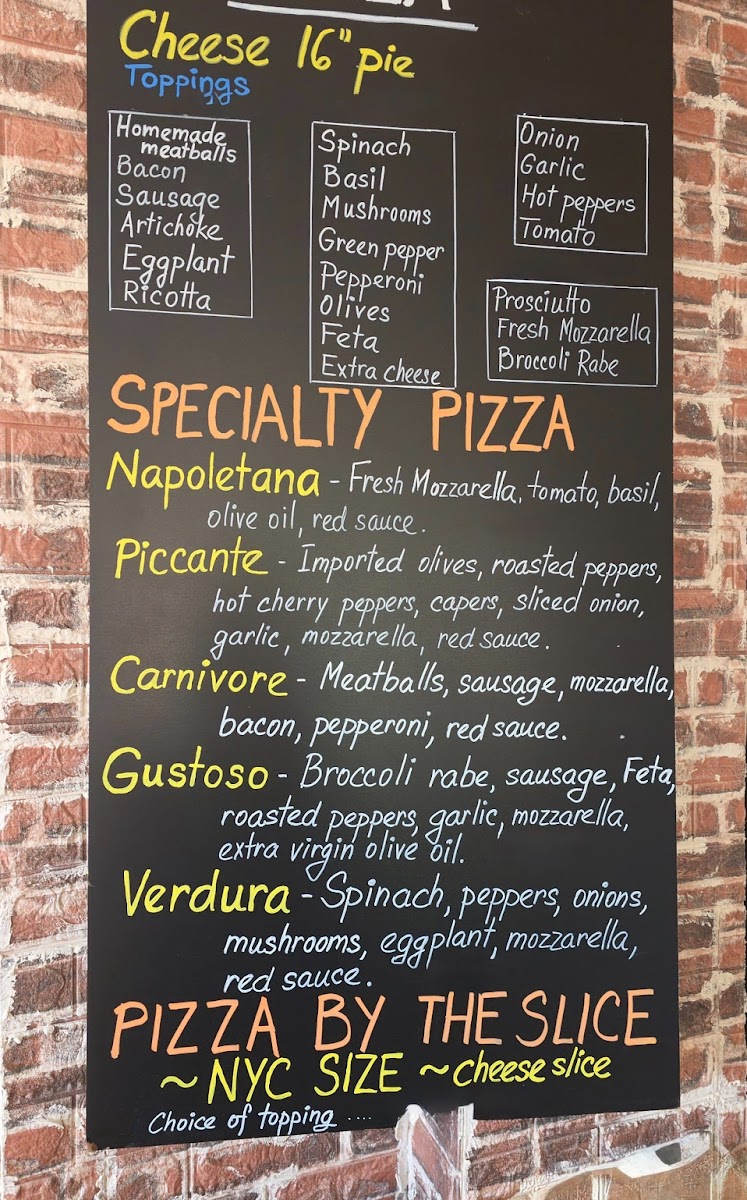 Cheese 16" pie
Toppings
Homemade
meatballs
Bacon
Sausage
Artichoke
Eggplant
Ricotta
Spinach
Basil
Mushrooms
Green pepper
Pepperoni
Olives
Feta
Extra cheese
Onion
Garlic
Hot peppers
Tomato
Prosciutto
Fresh Mozzarella
Broccoli Rabe
SPECIALTY PIZZA
Napoletana - Fresh Mozzarella, tomato, basil,
olive oil, red sauce.
Piccante - Imported olives, roasted peppers,
hot cherry peppers, capers, sliced onion,
garlic, mozzarella, red sauce.
Carnivore - Meatballs, sausage, mozzarella,
bacon, pepperoni, red sauce.
Gustoso - Broccoli rabe, sausage, Feta,
roasted peppers, garlic, mozzarella,
extra virgin olive oil.
Verdura - Spinach, peppers, onions,
mushrooms, eggplant, mozzarella,
red sauce.
PIZZA BY THE SLICE
~NYC SIZE ~cheese slice
Choice of topping ....